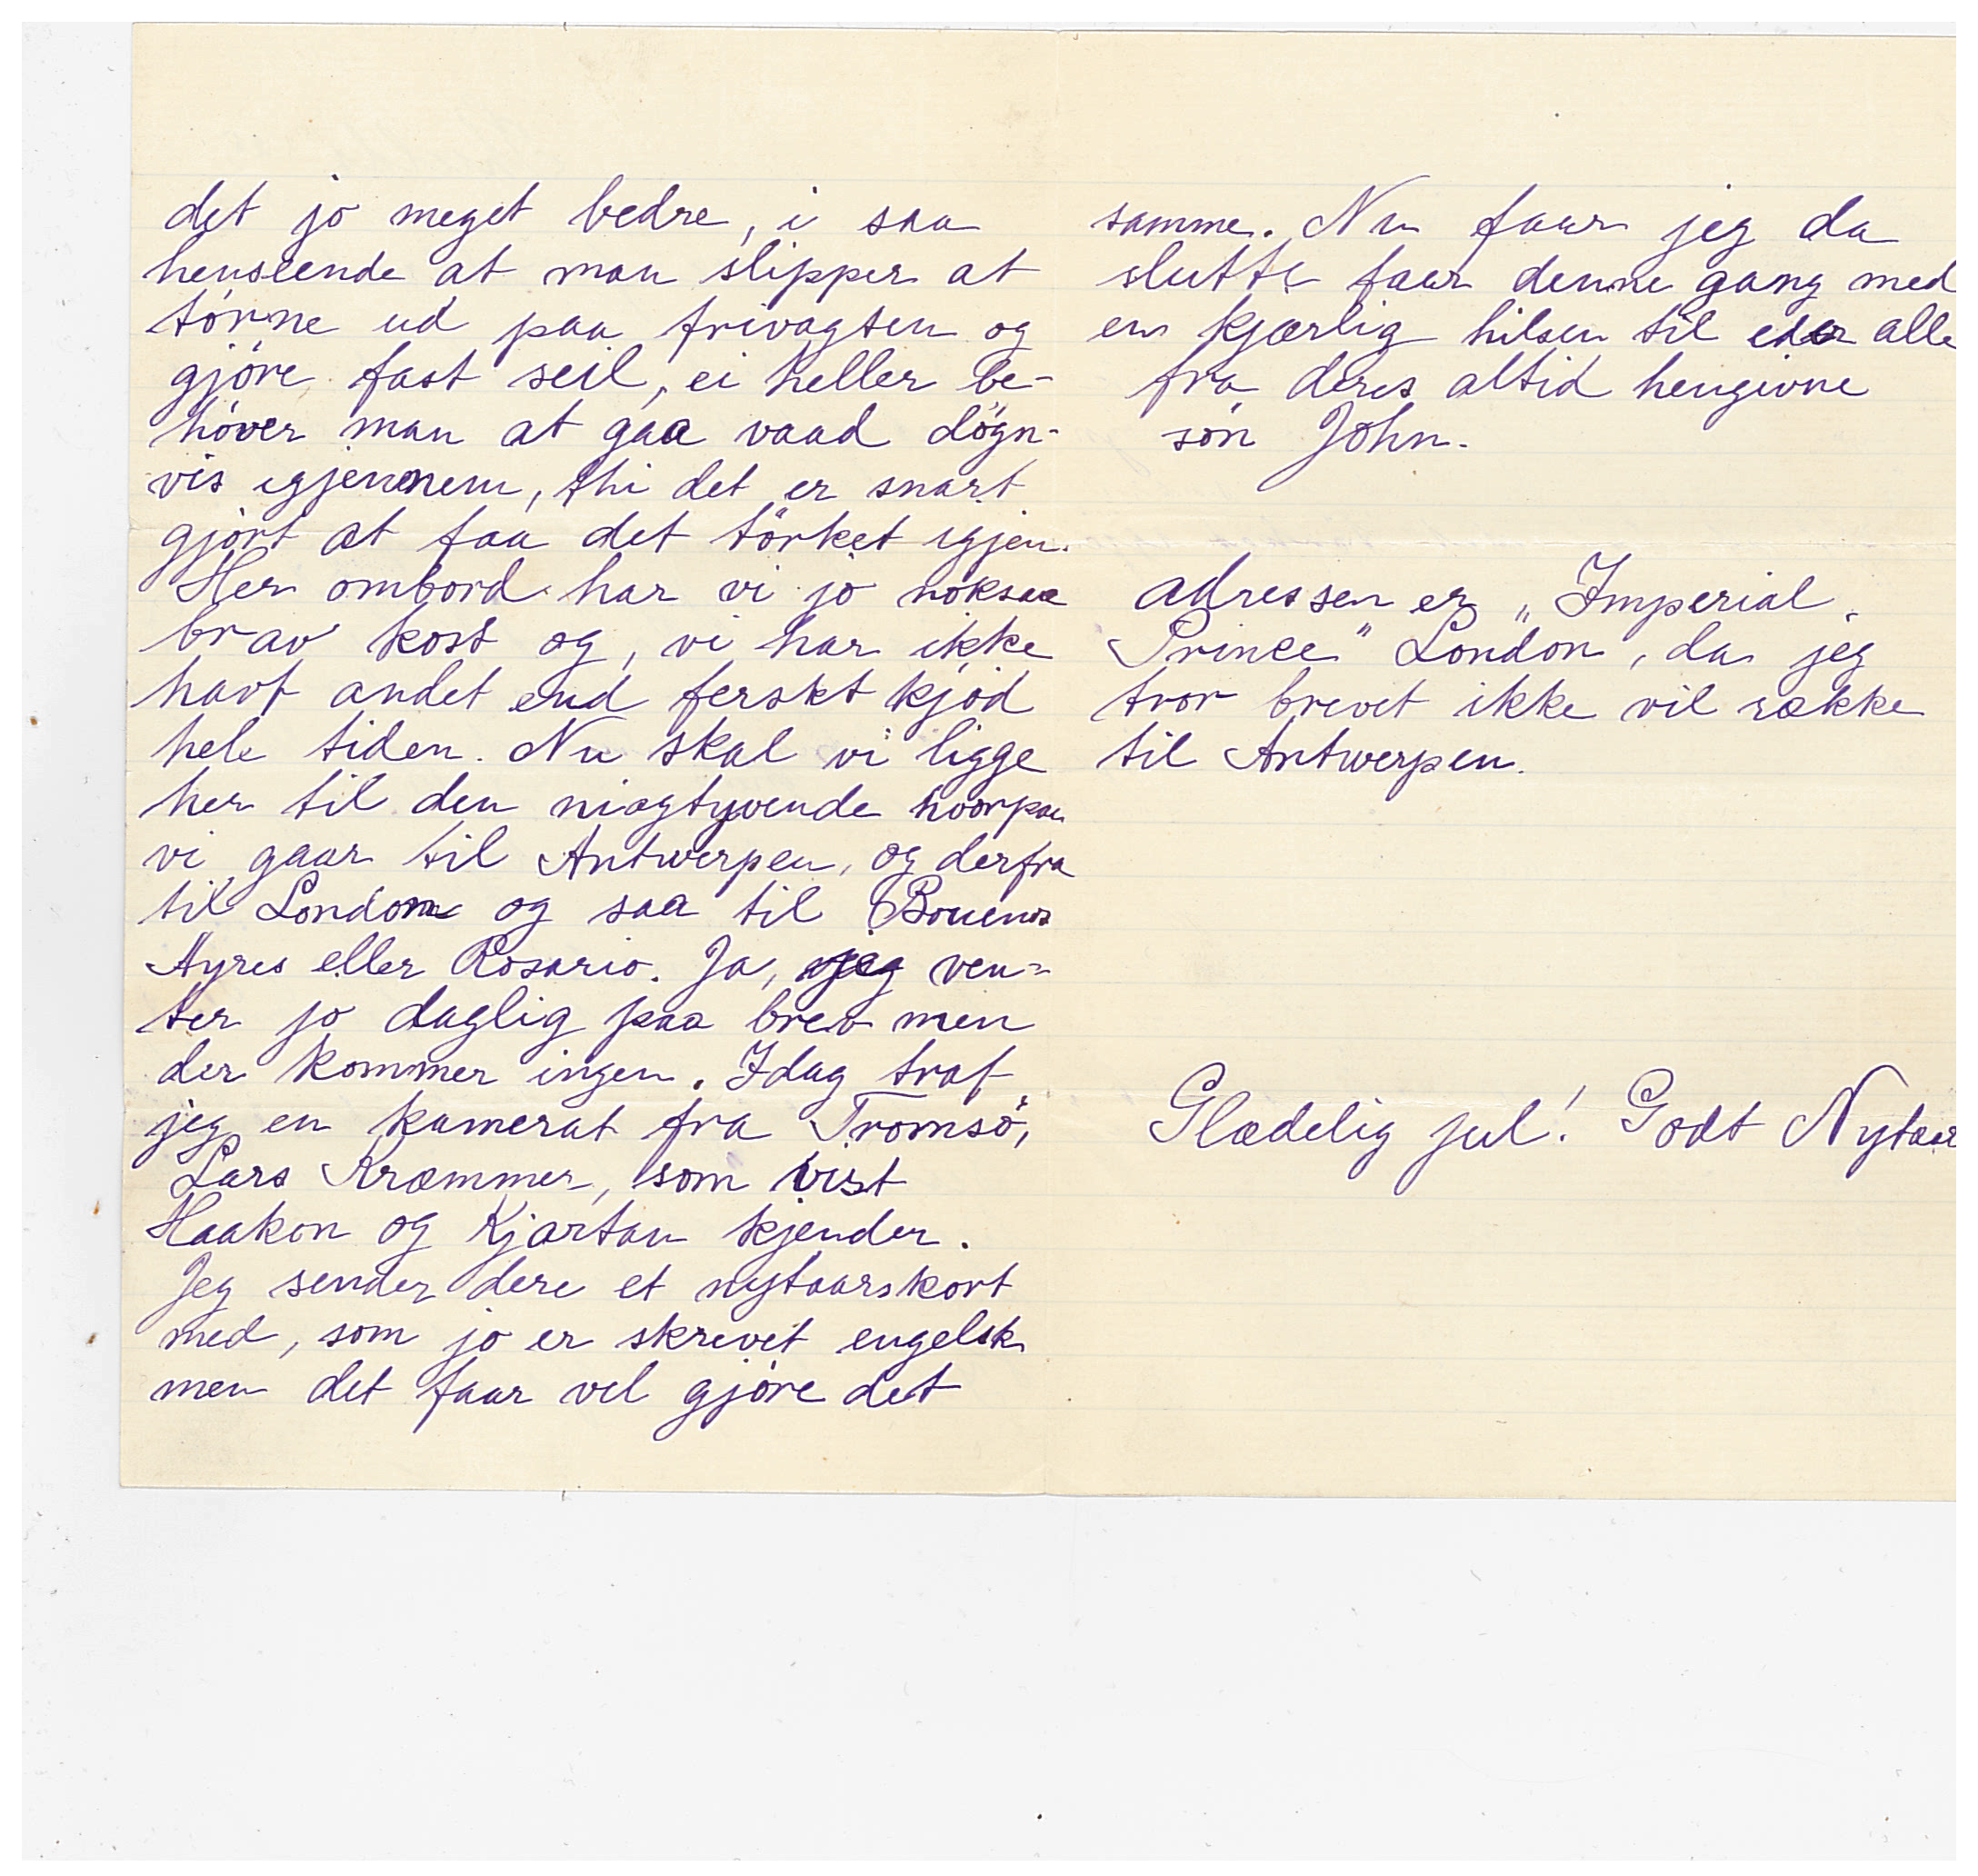 det jo meget bedre, i saa
henseende at man slipper at
törne ud paa frivagten og
gjöre fast seil, ei heller be-
höver man at gaa vaad dögn-
vis igjennem, thi det er snart
gjört at faa det törket igjen.
Her ombord har vi jo noksaa
brav kost og, vi har ikke
havt andet end ferskt kjöd
hele tiden. Nu skal vi ligge
her til den niogtyvende hvorpaa
vi gaar til Antwerpen, og derfra
til London og saa til Bouenos
Ayres eller Rosario. Ja, jeg ven-
ter jo daglig paa brev men
der kommer ingen. Idag traf
jeg en kamerat fra Tromsö,
Lars Kræmmer, som vist
Haakon og Kjartan kjender.
Jeg sender dere et nytaarskort
med, som jo er skrevet engelsk
men det faar vel gjöre det
samme. Nu faar jeg da
slutte faar denne gang med
en kjærlig hilsen til eder alle
fra deres altid hengivne
sön John.
adressen er „Imperial
Prince" London, da jeg
tror brevet ikke vil række
til Antwerpen.
Glædelig jul! Godt Nytaar